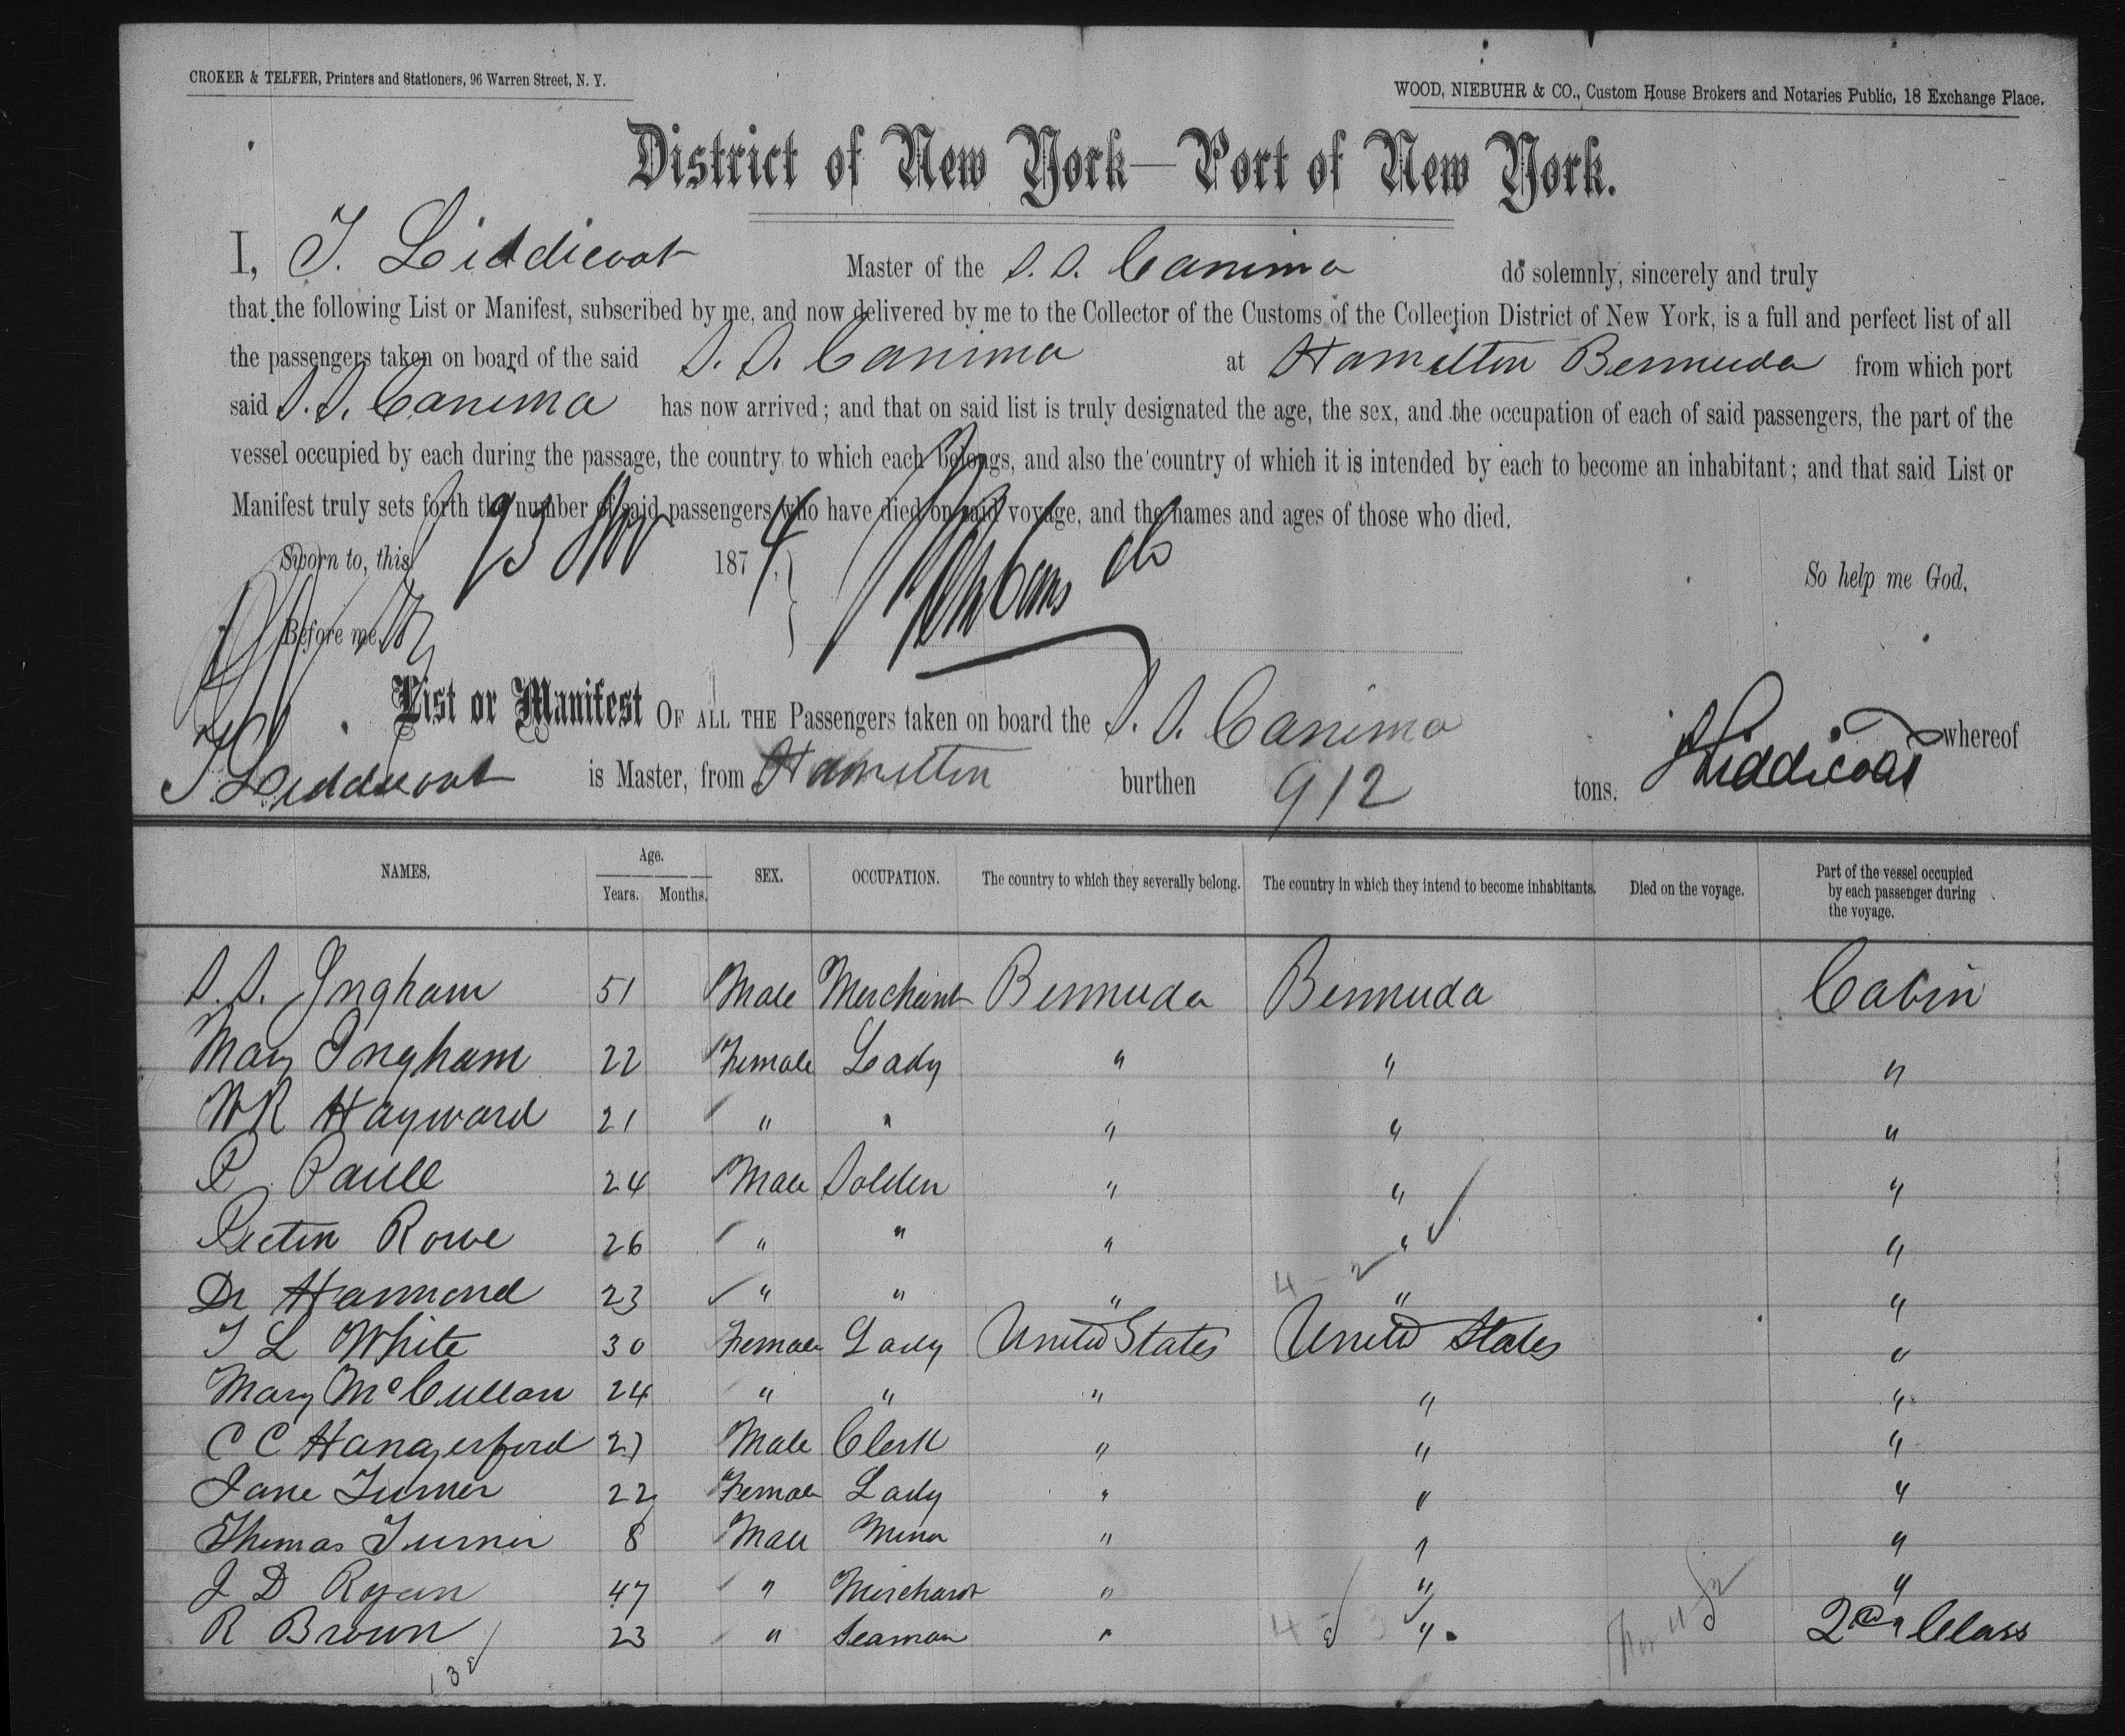 CROKER & TELFER, Printers and Stationers, 96 Warren Street, N. Y.
WOOD, NIEBUHR & CO., Custom House Brokers and Notaries Public, 18 Exchange Place.
District of New York—Port of New York.
I, T. Liddicoat Master of the S. S. Canima do solemnly, sincerely and truly
that the following List or Manifest, subscribed by me, and now delivered by me to the Collector of the Customs of the Collection District of New York, is a full and perfect list of all
the passengers taken on board of the said S. S. Canima at Hamilton Bermuda from which port
said S. S. Canima has now arrived; and that on said list is truly designated the age, the sex, and the occupation of each of said passengers, the part of the
vessel occupied by each during the passage, the country to which each belongs, and also the country of which it is intended by each to become an inhabitant; and that said List or
Manifest truly sets forth the number of said passengers who have died on said voyage, and the names and ages of those who died.
Sworn to, this 23 Nov 1874
So help me God.
Before me,
List or Manifest OF ALL THE Passengers taken on board the S. S. Canima whereof
T Liddicoat is Master, from Hamilton burthen 912 tons. Liddicoat
NAMES. Age. Years. Months. SEX. OCCUPATION. The country to which they severally belong. The country in which they intend to become inhabitants. Died on the voyage. Part of the vessel occupied by each passenger during the voyage.
S. S. Ingham 51 Male Merchant Bermuda Bermuda Cabin
Mary Ingham 22 Female Lady " " "
W R Hayward 21 " " " " "
P 24 Male " " "
Rowe 26 " " " " "
Dr Hammond 23 " " " " "
T L White 30 Female Lady United States United States "
Mary McCullan 24 " " " " "
C C Hangerford 27 Male Clerk " " "
Jane Turner 22 Female Lady " " "
Thomas Turner 8 Male Minor " " "
J D Rogan 47 " Merchant " " "
R Brown 23 " Seaman " " 2nd Class
13